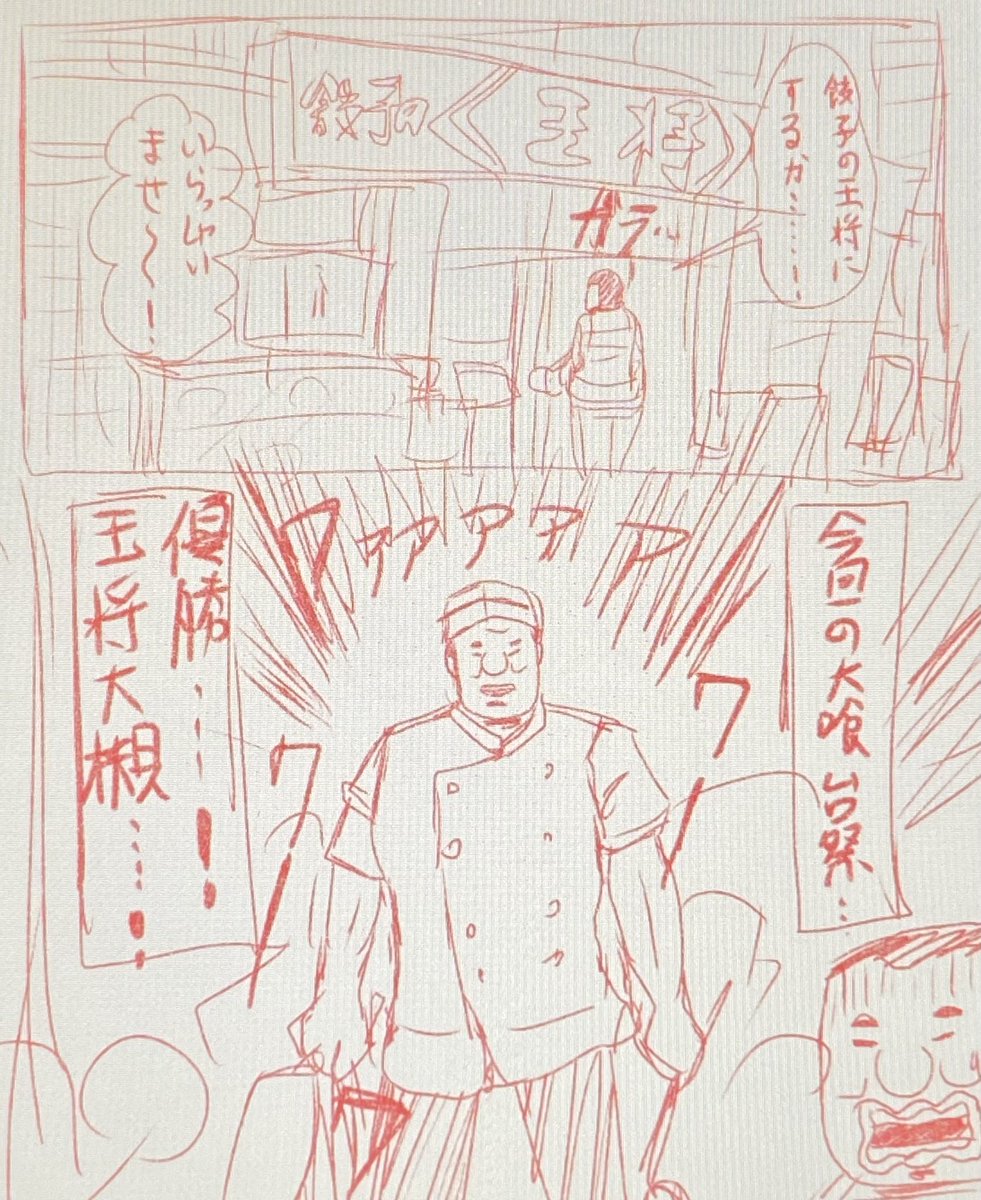 餃子の王将に
するか………
餃子の王将
ガラッ
いらっしゃい
ませ〜〜!
今回の大喰台祭…
ワァァアアア
ワー
ワー
優勝……!!
王将大槻……!!